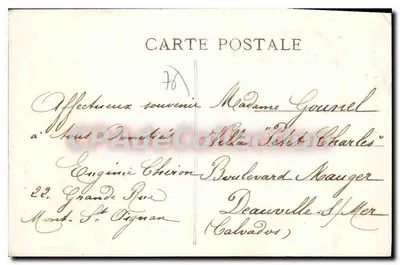 CARTE POSTALE
76
Affectueux souvenir
à tous
Eugénie Chéron
22 Grande Rue
Mont-St Aignan
Madame Gounel
Villa "Petit Charles"
Boulevard Mauger
Deauville s/Mer
(Calvados)